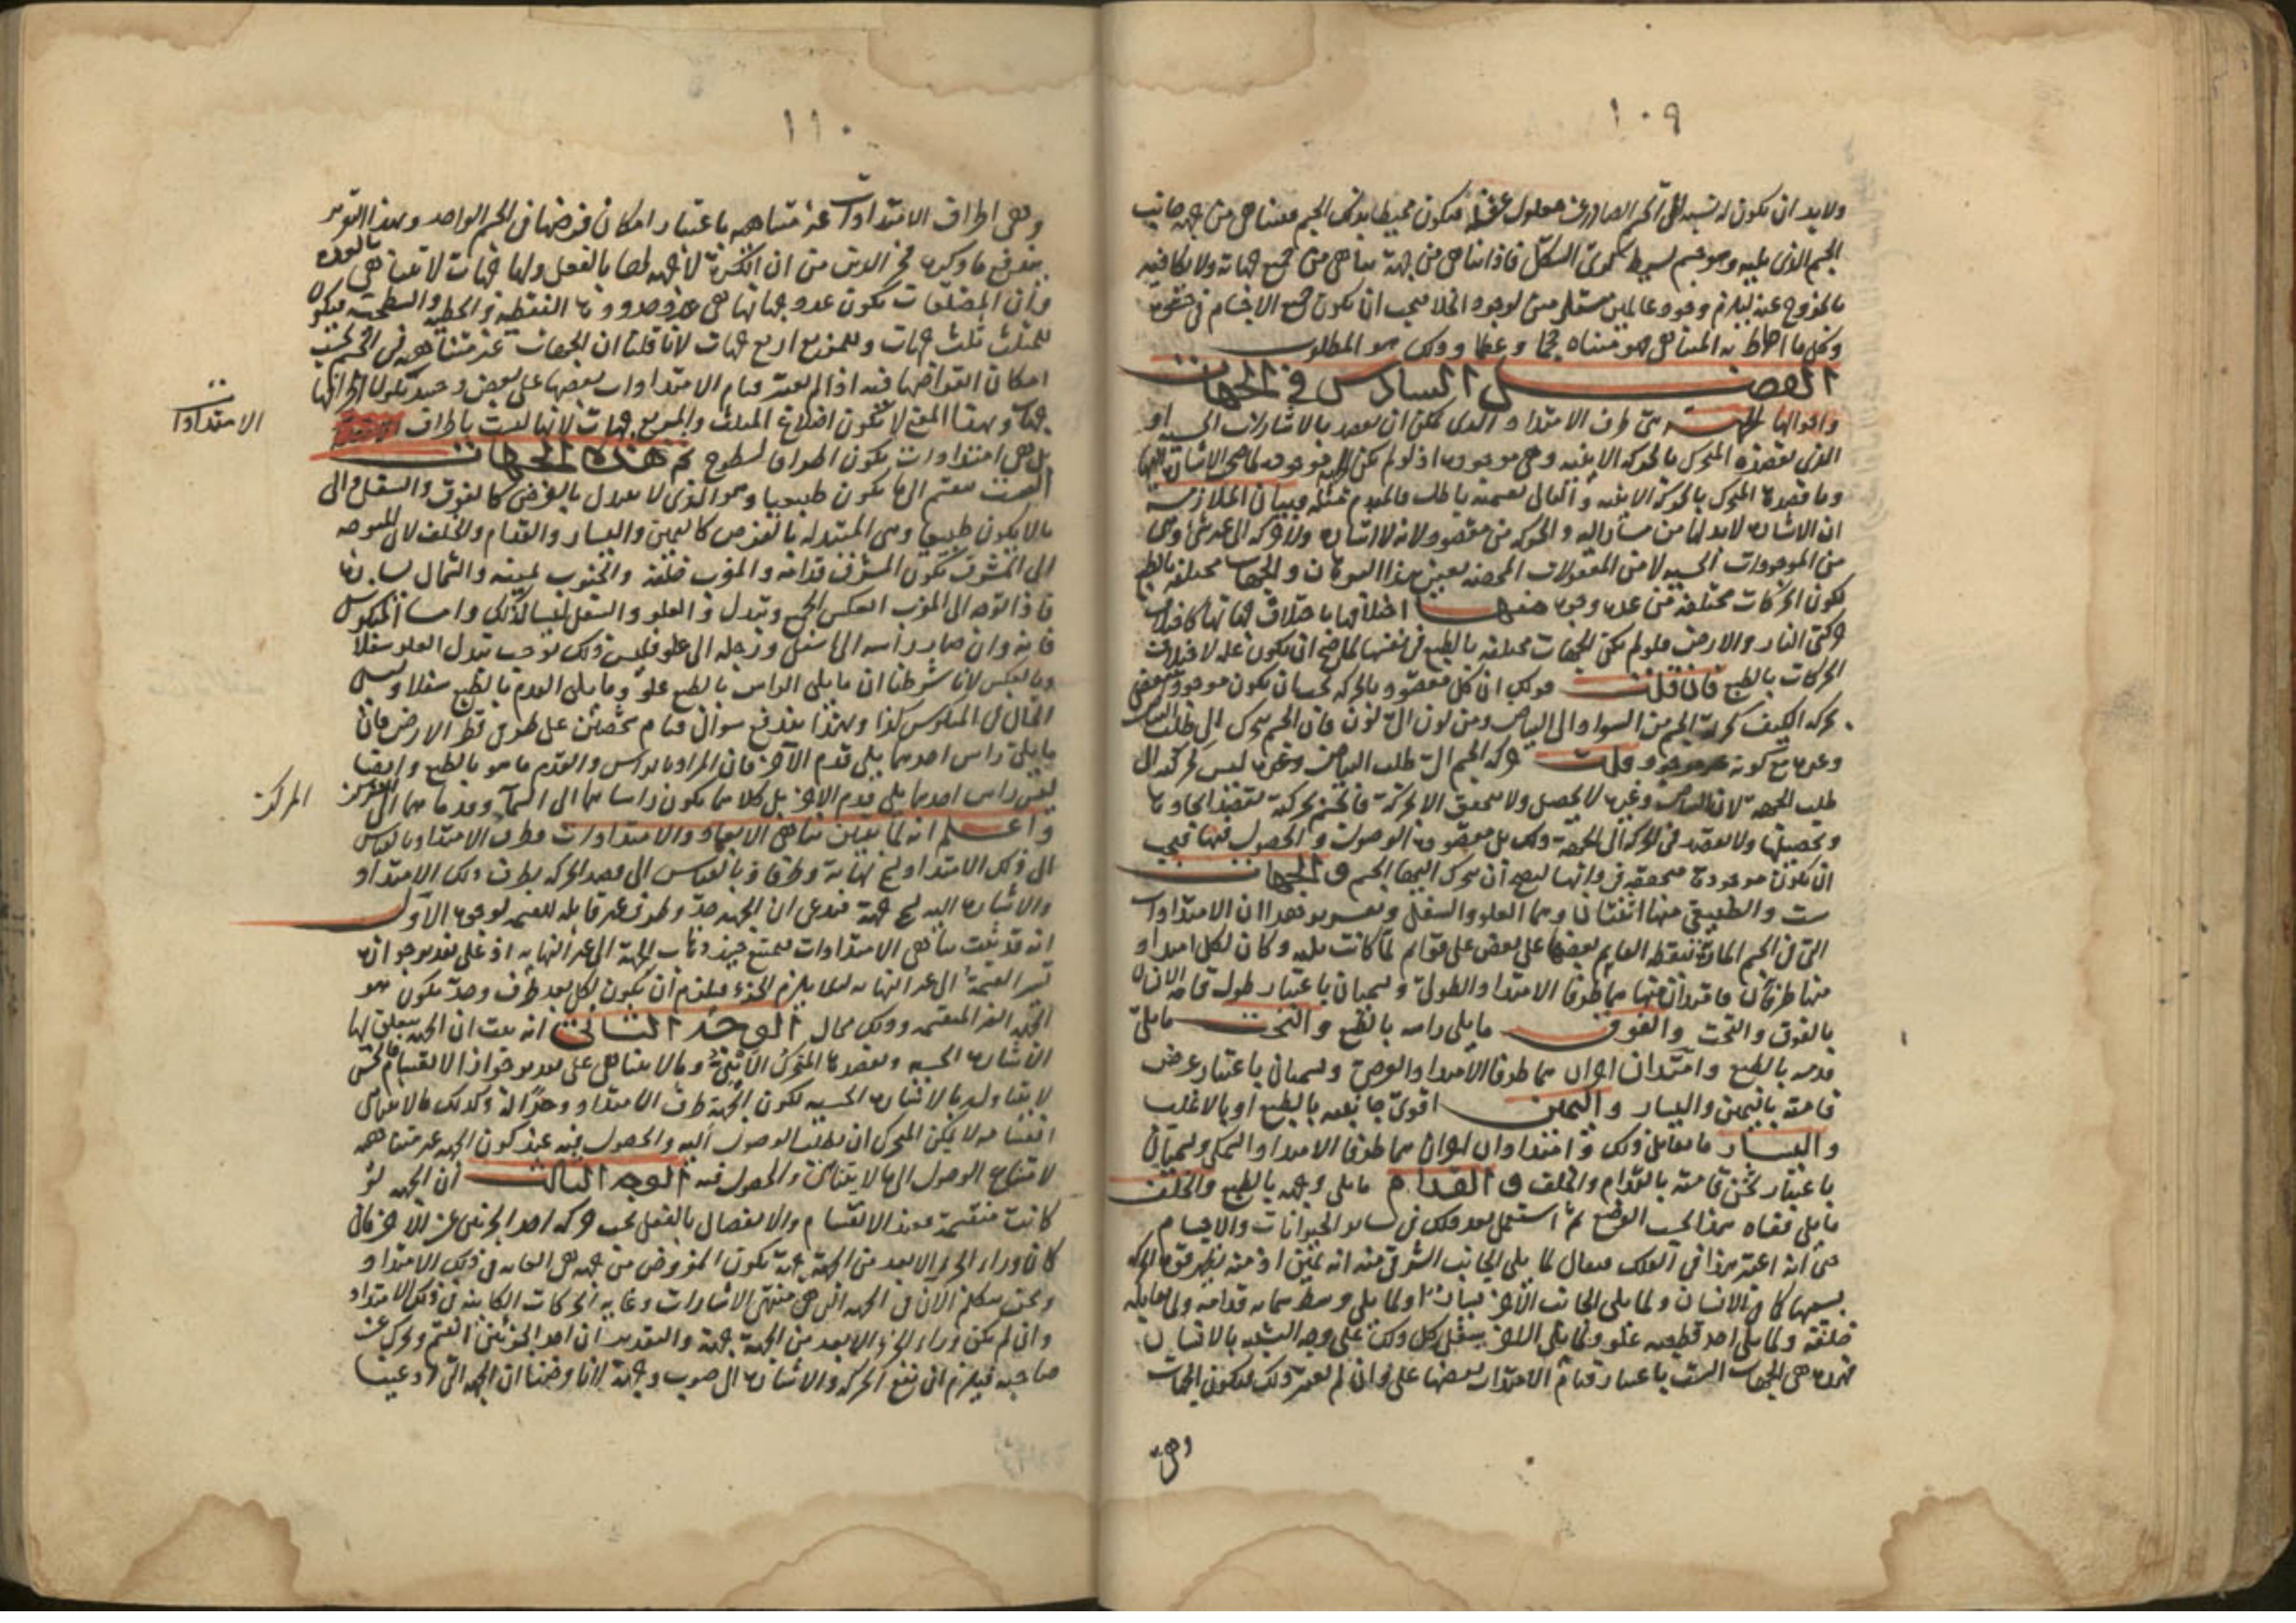 ١٠٩
ولابد ان يكون له نسبة الى الجرم الصادر عن معلول عقله فيكون محيطا بذلك الجسم متناهى من جهة جانب
الجسم الذى يليه وهو جسم بسيط كروى الشكل فاذا تناهى من جهة تناهى من جميع جهاته ولا مكافيه
بالخروج عنه ليلزم وجود عالمين مستلزمين لوجود الخلا فيجب ان يكون جميع الاجسام فى حشوه
وكل ما احاط به المتناهى فهو متناه حجما وعظما وذلك هو المطلوب
الفصل السادس فى الجهات
واحوالها الجهة هى طرف الامتداد الذى يمكن ان يقصد بالاشارات الحسية او
الذى يقصده المتحرك بالحركة الاينية وهى موجودة اذ لو لم تكن الجهة موجودة لما صحت الاشارة اليها
وما قصده المتحرك بالحركة الاينية والتالى بقسميه باطل فالمقدم مثله وبيان الملازمة
ان الاشارة لابد لها من مشار اليه والحركة من مقصود لانه لا اشارة ولا حركة الى غير شئ وهى
من الموجودات الحسية لا من المعقولات المحضة بعين هذا البرهان والجهات مختلفة بالطبع
لكون الحركات مختلفة من عدة وجوه منها اختلافها باختلاف جهاتها كاختلاف
حركتى النار والارض فلو لم تكن الجهات مختلفة بالطبع فى نفسها لما صح ان يكون علة لاختلاف
الحركات بالطبع فان قلت قولك ان كل مقصود بالحركة يجب ان يكون موجودا ينتقض
بحركة الكيف كحركة الجسم من السواد الى البياض ومن لون الى لون فان الجسم يتحرك الى طلب البياض
وغيره مع كونه غير موجود قلت حركة الجسم الى طلب البياض وغيره ليس كحركته الى
طلب الجهة لان البياض وغيره لا يحصل ولا يتحقق الا بحركة فالجسم بحركته يقصد ايجادها
وتحصيلها ولا يقصد فى الحركة الى الجهة ذلك بل مقصوده الوصول والحصول فيها فيجب
ان يكون موجودة متحققة فى ذاتها ليصح ان يتحرك اليها الجسم والجهات
ست والطبيعى منها اثنتان وهما العلو والسفل وتقرير هذا ان الامتدادات
التى فى الجسم المارة بنقطة القايم بعضها على بعض على قوايم لما كانت ثلثة وكان لكل امتداد
منها طرفان فامتدان منها هما طرفا الامتداد الطولى ويسميان باعتبار طول قامة الانسان
بالفوق والتحت والفوق ما يلى راسه بالطبع والتحت ما يلى
قدمه بالطبع وامتدان اخران هما طرفا الامتداد العرضى ويسميان باعتبار عرض
قامته باليمين واليسار واليمين اقوى جانبيه بالطبع او بالاغلب
واليسار ما يقابل ذلك وامتدادان اخران هما طرفا الامتداد السمكى ويسميان
باعتبار ثخن قامته بالقدام والخلف والقدام ما يلى وجهه بالطبع والخلف
ما يلى قفاه هذا بحسب الوضع ثم استعمل بعد ذلك فى ساير الحيوانات والاجسام
حتى انه اعتبر هذا فى الفلك فيقال لما يلى الجانب الشرقى منه انه يمين اذ منه يظهر قوة الحركة
يمينها كما فى الانسان ولما يلى الجانب الاخر يسارا ولما يلى وسط سمائه قدامه ولما يقابله
خلفه ولما يلى احد قطبيه علو ولما يلى الاخر سفل كل ذلك على وجه التشبيه بالانسان
فهذه هى الجهات الست باعتبار قيام الامتدادات بعضها على وان لم يعتبر ذلك فتكون الجهات
وهى
١١٠
وهى اطراف الامتدادات غير متناهية باعتبار امكان فرضها فى الجسم الواحد وبهذا التقرير
يندفع ما ذكره فخر الدين من ان الكرة لا جهة لها بالفعل ولها جهات لا تتناهى بالقوة
وان المضلعات تكون عدد جهاتها هى عدد حدودها النقطية والخطية والسطحية فيكون
للمثلث ثلث جهات وللمربع اربع جهات لانا قلنا ان الجهات غير متناهية فى الجسم بحسب
امكان افتراضها فيه اذا لم يعتبر قيام الامتدادات بعضها على بعض وحينئذ تكون اطرافها
جهات وبهذا المعنى لا تكون اضلاع المثلث والمربع جهات لانها ليست باطراف
الامتدادات
بل هى امتدادات تكون اطرافا لسطوح ثم هذه الجهات
الست تنقسم الى ما يكون طبيعيا وهو الذى لا يتبدل بالفرض كالفوق والسفل والى
ما لا يكون طبيعيا وهى المتبدلة بالفرض كاليمين واليسار والقدام والخلف لان المتوجه
الى المشرق يكون المشرق قدامه والمغرب خلفه والجنوب يمينه والشمال يساره
فاذا توجه الى المغرب انعكس الجميع وتبدل والعلو والسفل ليسا كذلك واما المنكوس
فانه وان صار راسه الى اسفل ورجله الى علو فليس ذلك يوجب تبدل العلو سفلا
وبالعكس لانا شرطنا ان ما يلى الراس بالطبع علو وما يلى القدم بالطبع سفلا وليس
الحال فى المنكوس كذا وبهذا يندفع سؤال قيام شخصين على طرفى قطر الارض فان
ما يلى راس احدهما يلى قدم الاخر فان المراد بالراس والقدم ما هو بالطبع وايضا
ليس راس احدهما يلى قدم الاخر بل كلاهما يكون راساهما الى السماء وقدماهما الى المركز
المركز
واعلم انه لما تبين تناهى الابعاد والامتدادات فطرف الامتداد بالقياس
الى ذلك الامتداد يسمى نهاية وطرفا وبالقياس الى قصد الحركة بطرف ذلك الامتداد
والاشارة اليه يسمى جهة فندعى ان الجهة حد وطرف غير قابلة للقسمة لوجوه الاول
انه قد ثبت تناهى الامتدادات فيمتنع حينئذ ذهاب الجهة الى غير النهاية اذ على تقدير جواز
القسمة الى غير النهاية لئلا يلزم الجزء فيلزم ان يكون لكل بعد طرف وحد يكون هو
الجهة الغير المنقسمة وذلك محال الوجه الثانى انه ثبت ان الجهة يتعلق بها
الاشارة الحسية ويقصدها المتحرك الاينى وما لا يتناهى على تقدير جواز الانقسام
لا يتناوله بالاشارة الحسية لكون الجهة طرف الامتداد وحدا له وكذلك ما لا يتناهى
انقسامه لا يمكن المتحرك ان يطلب الوصول اليه والحصول فيه عند كون الجهة غير متناهية
لامتناع الوصول الى ما لا يتناهى والحصول فيه الوجه الثالث ان الجهة لو
كانت منقسمة فعند الانقسام والانفصال بالفعل يجب حركة احد الجزئين عن الاخر فان
كان وراء الجزء الابعد من الجهة جهة يكون المفروض من جهة هى الغاية فى ذلك الامتداد
ونحن نتكلم الان فى الجهة التى هى منتهى الاشارات وغاية الحركات الكاينة فى ذلك الامتداد
وان لم يكن وراء الجزء الابعد من الجهة جهة والتقدير ان احد الجزئين انقسم وتحرك عن
صاحبه فيلزم ان تقع الحركة والاشارة الى صوب وجهة لانا فرضنا ان الجهة التى ادعينا